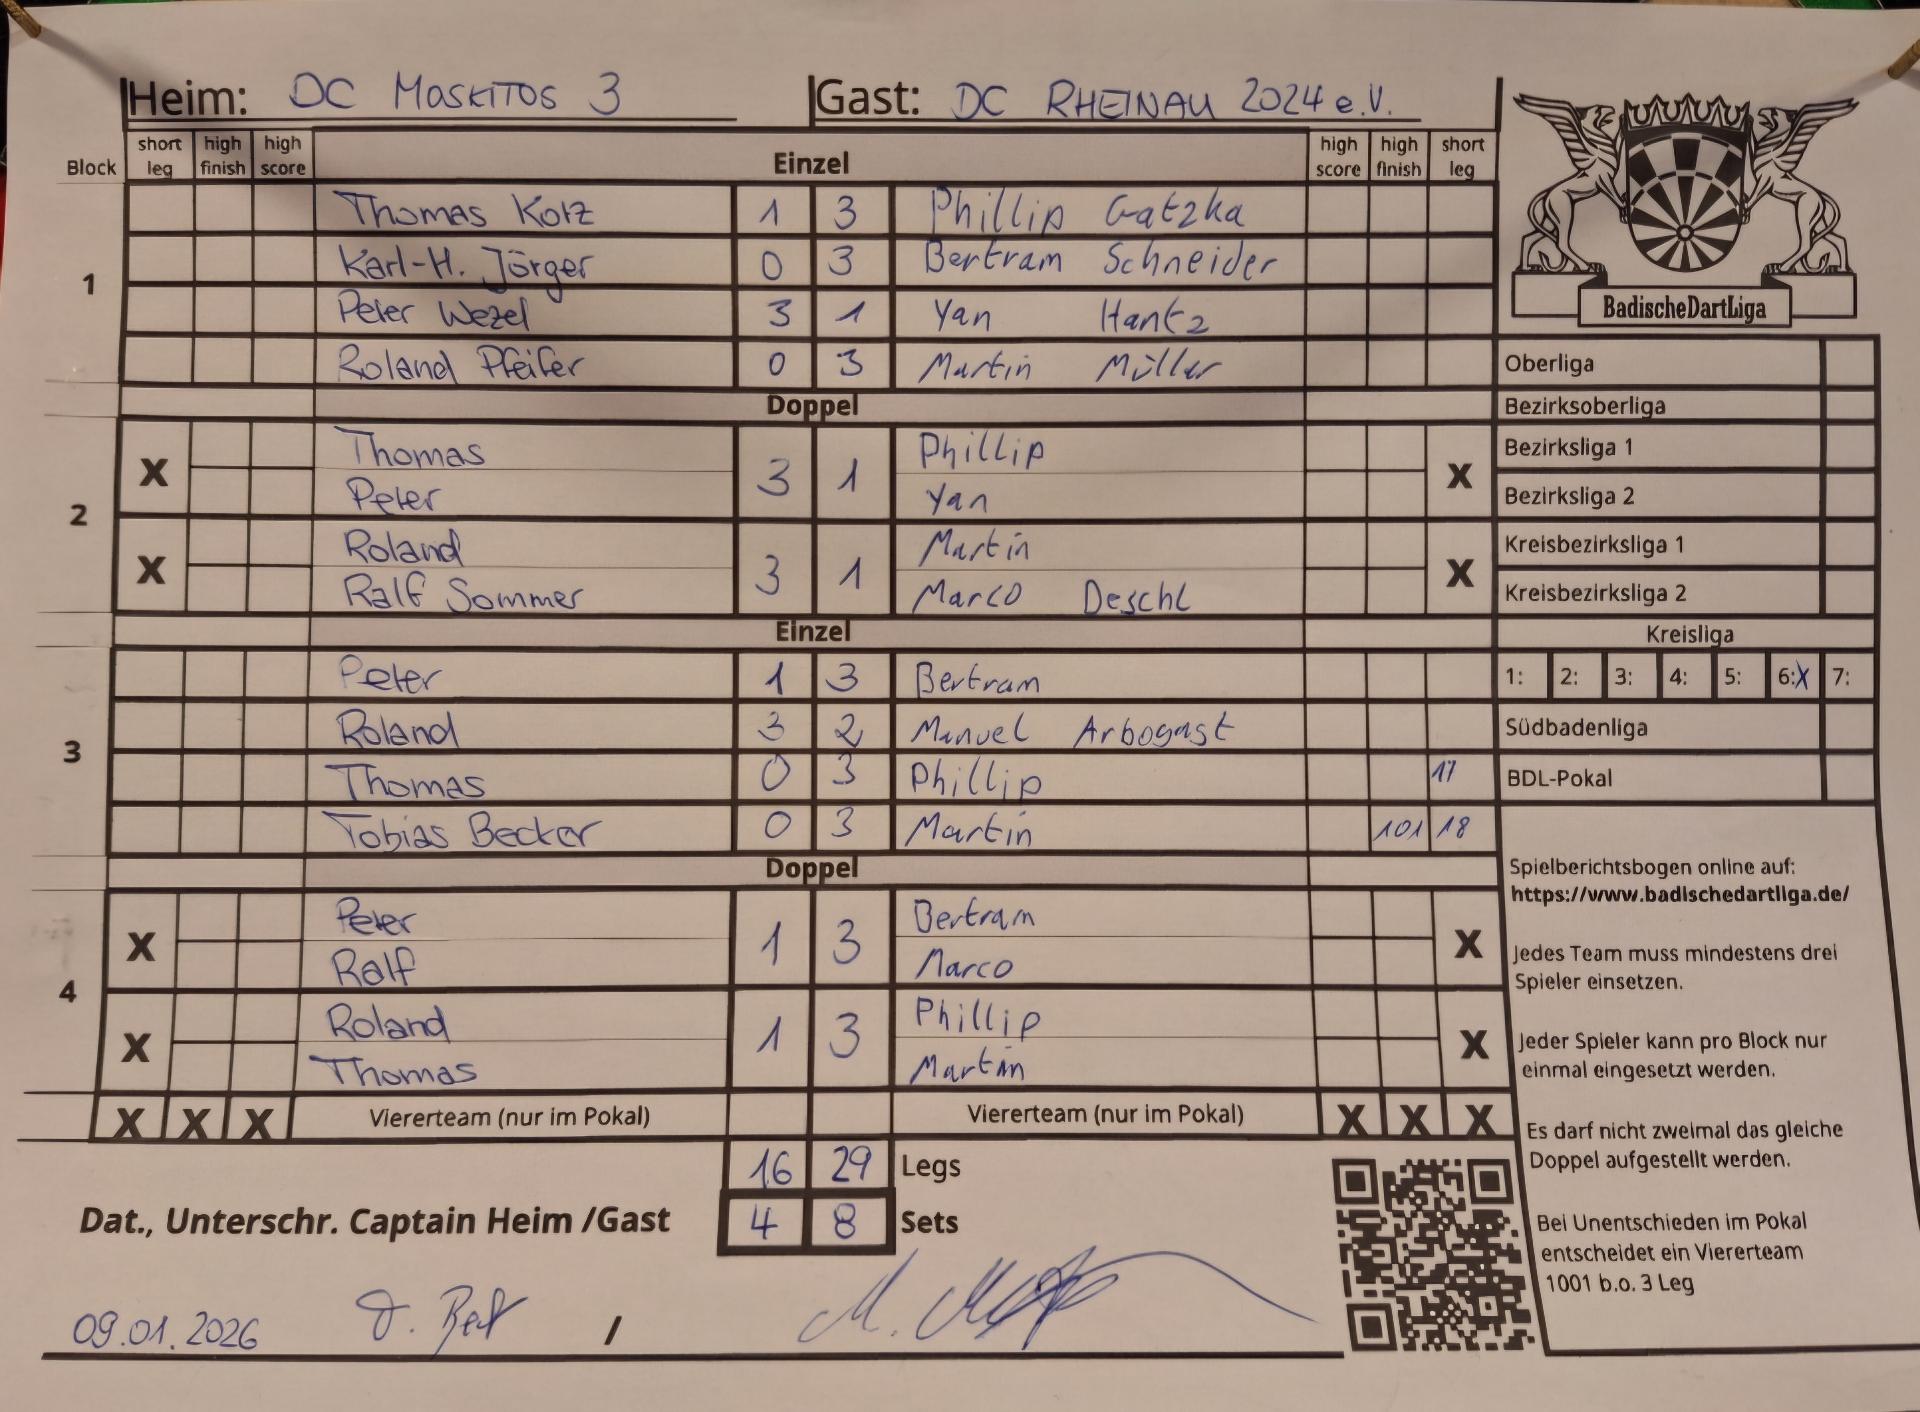 Heim: DC MOSKITOS 3 Gast: DC RHEINAU 2024 e.V.
Block short leg high finish high score Einzel high score high finish short leg
1
Thomas Kotz 1 3 Phillip Gatzka
Karl-H. Jörger 0 3 Bertram Schneider
Peter Wezel 3 1 Yan Hantz
Roland Pfeifer 0 3 Martin Müller
Doppel
2
X Thomas 3 1 Phillip X
Peter Yan
X Roland 3 1 Martin X
Ralf Sommer Marco Deschl
Einzel
3
Peter 1 3 Bertram
Roland 3 2 Manuel Arbogast
Thomas 0 3 Phillip 17
Tobias Becker 0 3 Martin 101 18
Doppel
4
X Peter 1 3 Bertram X
Ralf Marco
X Roland 1 3 Phillip X
Thomas Martin
X X X Viererteam (nur im Pokal) Viererteam (nur im Pokal) X X X
16 29 Legs
Dat., Unterschr. Captain Heim /Gast 4 8 Sets
09.01.2026 /
BadischeDartLiga
Oberliga
Bezirksoberliga
Bezirksliga 1
Bezirksliga 2
Kreisbezirksliga 1
Kreisbezirksliga 2
Kreisliga
1: 2: 3: 4: 5: 6:X 7:
Südbadenliga
BDL-Pokal
Spielberichtsbogen online auf:
https://www.badischedartliga.de/
Jedes Team muss mindestens drei
Spieler einsetzen.
Jeder Spieler kann pro Block nur
einmal eingesetzt werden.
Es darf nicht zweimal das gleiche
Doppel aufgestellt werden.
Bei Unentschieden im Pokal
entscheidet ein Viererteam
1001 b.o. 3 Leg